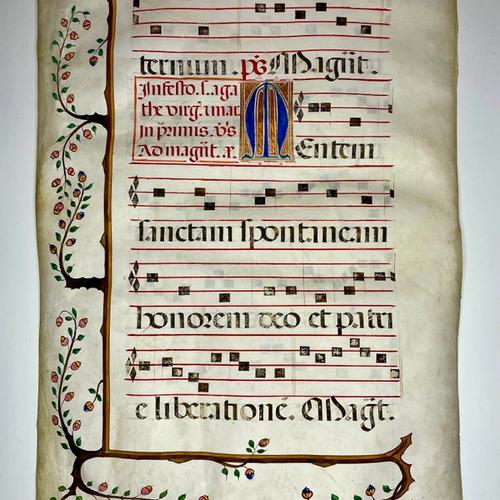 ternum. p̄s Magīt.
In festo. s. aga
the virgī. τ mat
In primis. v̄s
Ad magīt. a.
MEntem
sanctam spontaneam
honorem deo et patri
e liberationē. Magt̄.